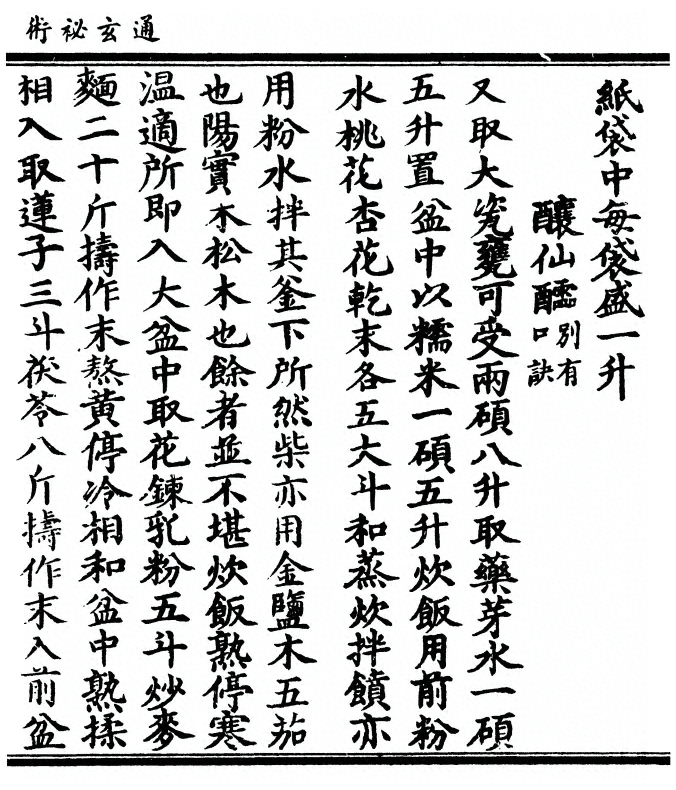 通玄祕術
紙袋中每袋盛一升
釀仙醹別有口訣
又取大瓷甕可受兩碩八升取藥芽水一碩
五升置盆中以糯米一碩五升炊飯用前粉
水桃花杏花乾末各五大斗和蒸炊拌饙亦
用粉水拌其釜下所然柴亦用金鹽木五茄
也陽實木松木也餘者並不堪炊飯熟停寒
温適所即入大盆中取花鍊乳粉五斗炒麥
麵二十斤擣作末熬黄停冷相和盆中熟揉
相入取蓮子三斗茯苓八斤擣作末入前盆